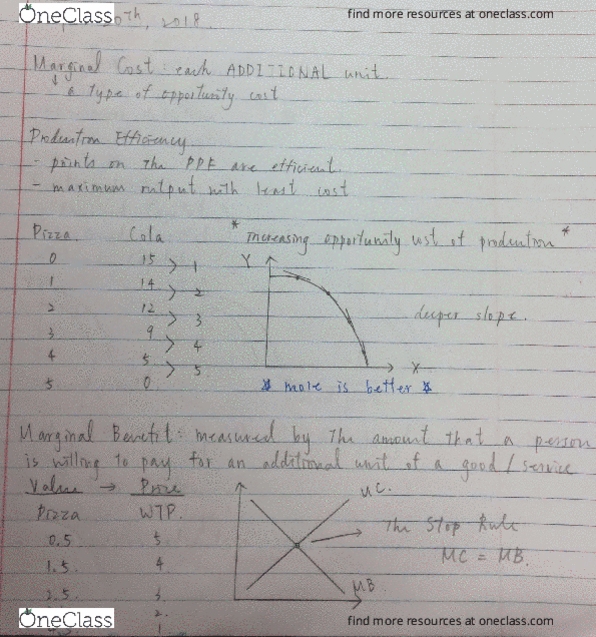 OneClass
find more resources at oneclass.com
20th, 2018
Marginal Cost: each ADDITIONAL unit.
↓ a type of opportunity cost
Production Efficiency
- points on the PPF are efficient.
- maximum output with least cost
Pizza Cola * increasing opportunity cost of production *
0 15 > 1 Y
1 14 > 2
2 12 > 3 deeper slope.
3 9 > 4
4 5 > 5 X
5 0 * more is better *
Marginal Benefit: measured by the amount that a person
is willing to pay for an additional unit of a good / service
Value → Price MC.
Pizza WTP. The Stop Rule
0.5 5 MC = MB.
1.5 4
2.5 3 MB
2.
1
OneClass
find more resources at oneclass.com